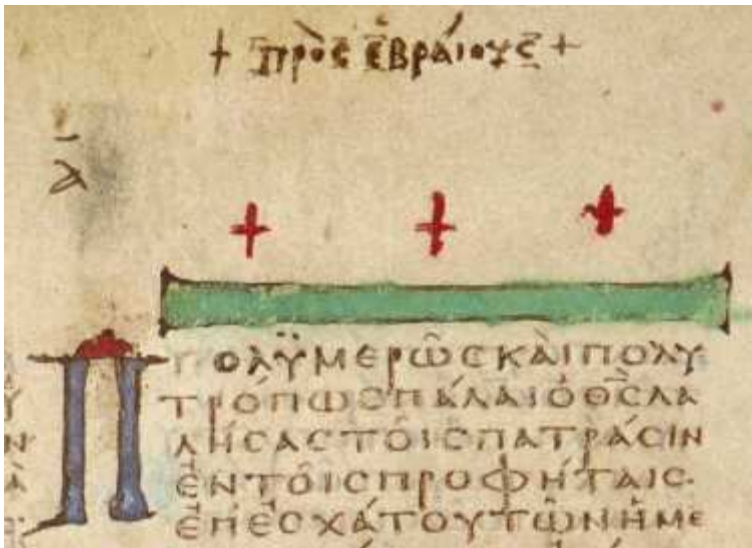 + πρὸς ἑβράιους +
ᾱ
Πολϋμερῶς κὰι πολυ
τρόπως πάλαι ὁ θ̅ς̅ λα
λήσας τοῖς πατράσιν
ἐν τοῖς προφήταις·
ἐπ' ἐσχάτου τῶν ἡμε